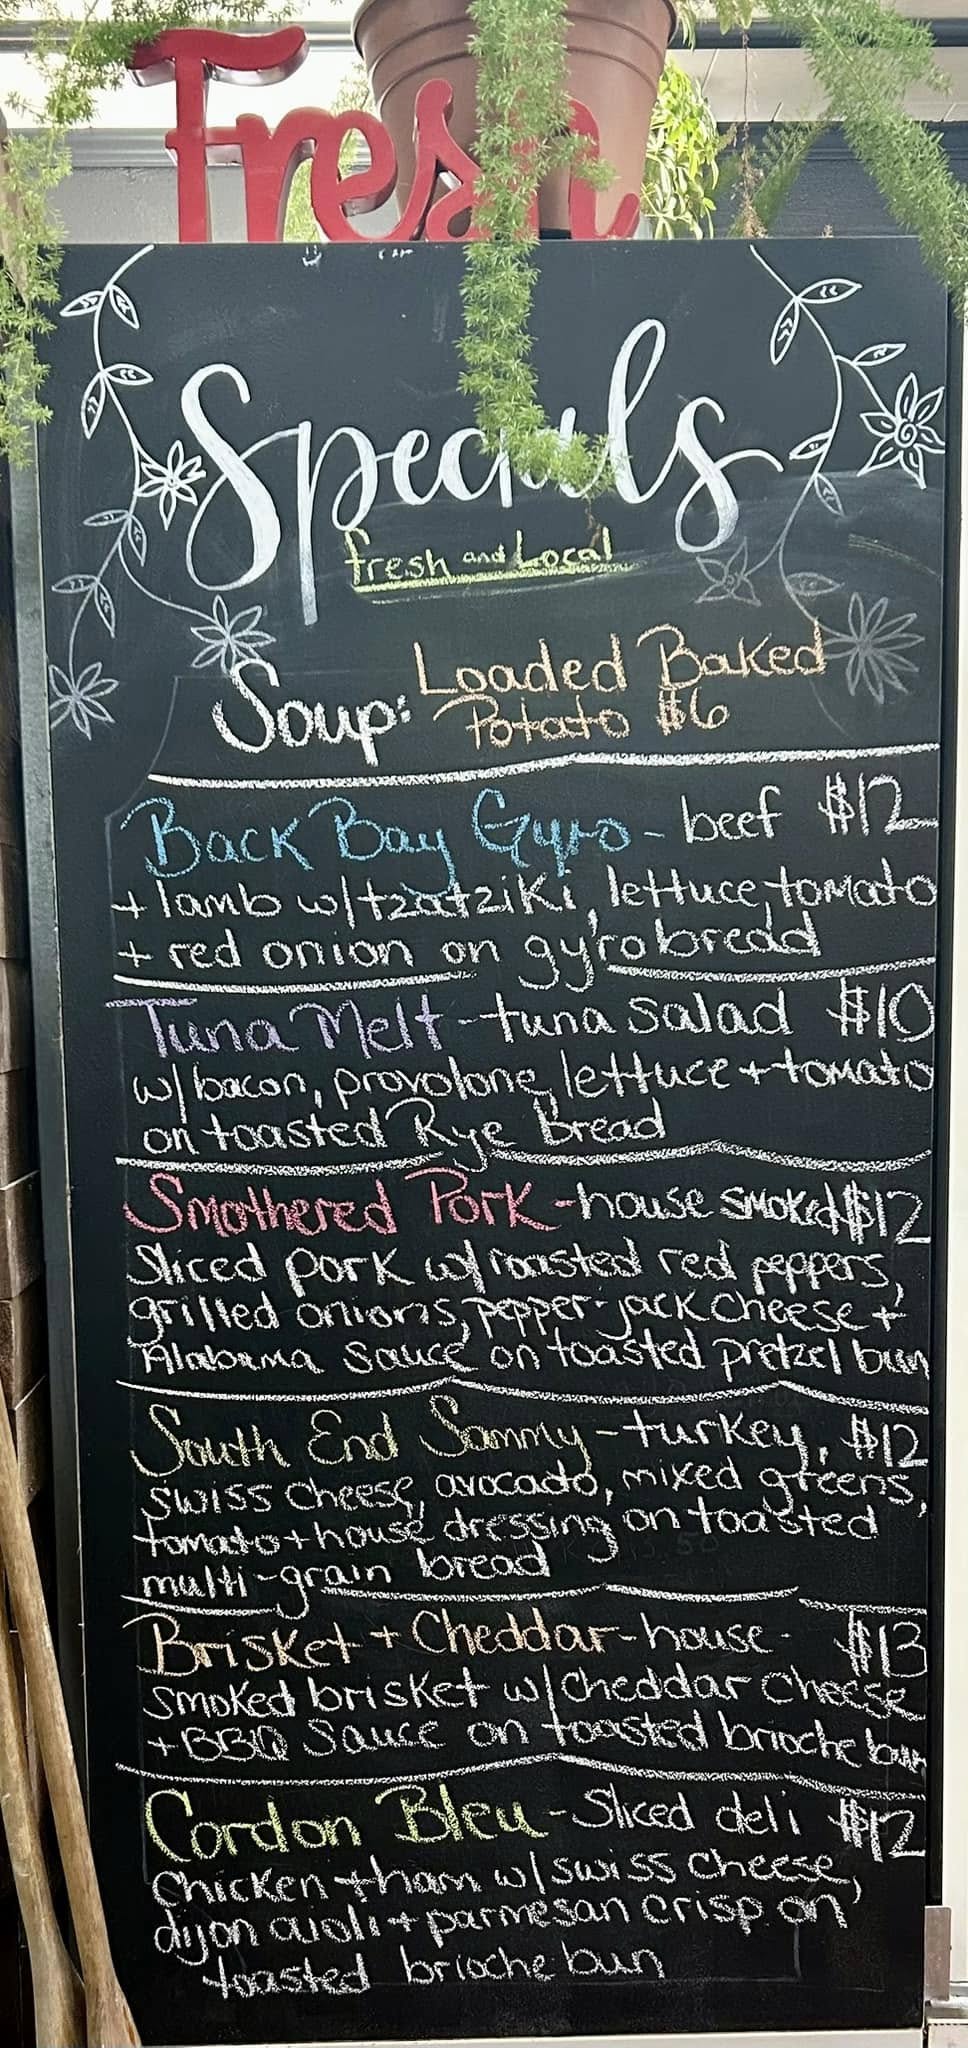 Fresh
Specials
fresh and Local
Soup: Loaded Baked
Potato $6
Back Bay Gyro - beef $12
+ lamb w/tzatziki, lettuce, tomato
+ red onion on gyro bread
Tuna Melt - tuna salad $10
w/bacon, provolone, lettuce + tomato
on toasted Rye bread
Smothered Pork - house smoked $12
sliced pork w/roasted red peppers,
grilled onions, pepper-jack cheese +
Alabama sauce on toasted pretzel bun
South End Sammy - turkey, $12
swiss cheese, avocado, mixed greens,
tomato + house dressing on toasted
multi-grain bread
Brisket + Cheddar - house- $13
smoked brisket w/cheddar cheese
+ BBQ Sauce on toasted brioche bun
Cordon Bleu - Sliced deli $12
chicken + ham w/swiss cheese,
dijon aioli + parmesan crisp on
toasted brioche bun